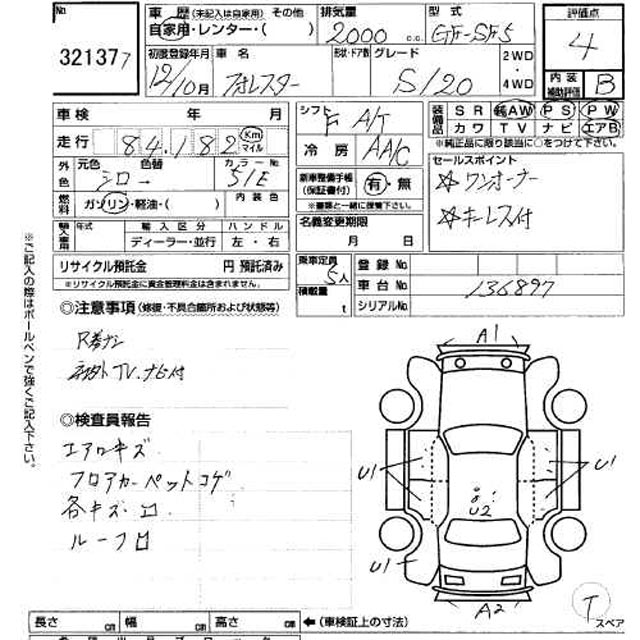 No. 32137 7
車歴 (未記入は自家用) その他
自家用・レンター・( )
排気量 2000 c.c.
型式 GF-SF5
評価点 4
内装補助評価 B
初度登録年月 12/10月
車名 フォレスター
形状・ドア数
グレード S/20
2WD・4WD
車検 年 月
シフト F A/T
装備品 SR 純AW PS PW
カワ TV ナビ エアB
※純正品に限り該当に○をつけて下さい。
走行 84,182 Km マイル
冷房 AA/C
外色 元色 シロ 色替 ー カラーNo 51E
燃料 ガソリン・軽油・( ) 内装色
新車整備手帳(保証書付) 有・無
※書類と一緒に保管下さい。
セールスポイント
☆ワンオーナー
☆キーレス付
輸入車用 年式 輸入区分 ハンドル
ディーラー・並行 左・右
名義変更期限
月 日
リサイクル預託金 円 預託済み
※リサイクル預託金に資金管理料金は含まれません。
乗車定員 5人
積載量 t
登録No
車台No 136897
シリアルNo
◎注意事項 (修復・不具合箇所および状態等)
ネカト TV.ナビ付
◎検査員報告
エアロキズ
フロアカーペットコゲ
各キズ・凹
ルーフ凹
※ご記入の際はボールペンで強くご記入下さい。
A1
U1
U1
U2
U1
A2
T
スペア
長さ cm 幅 cm 高さ cm ←(車検証上の寸法)